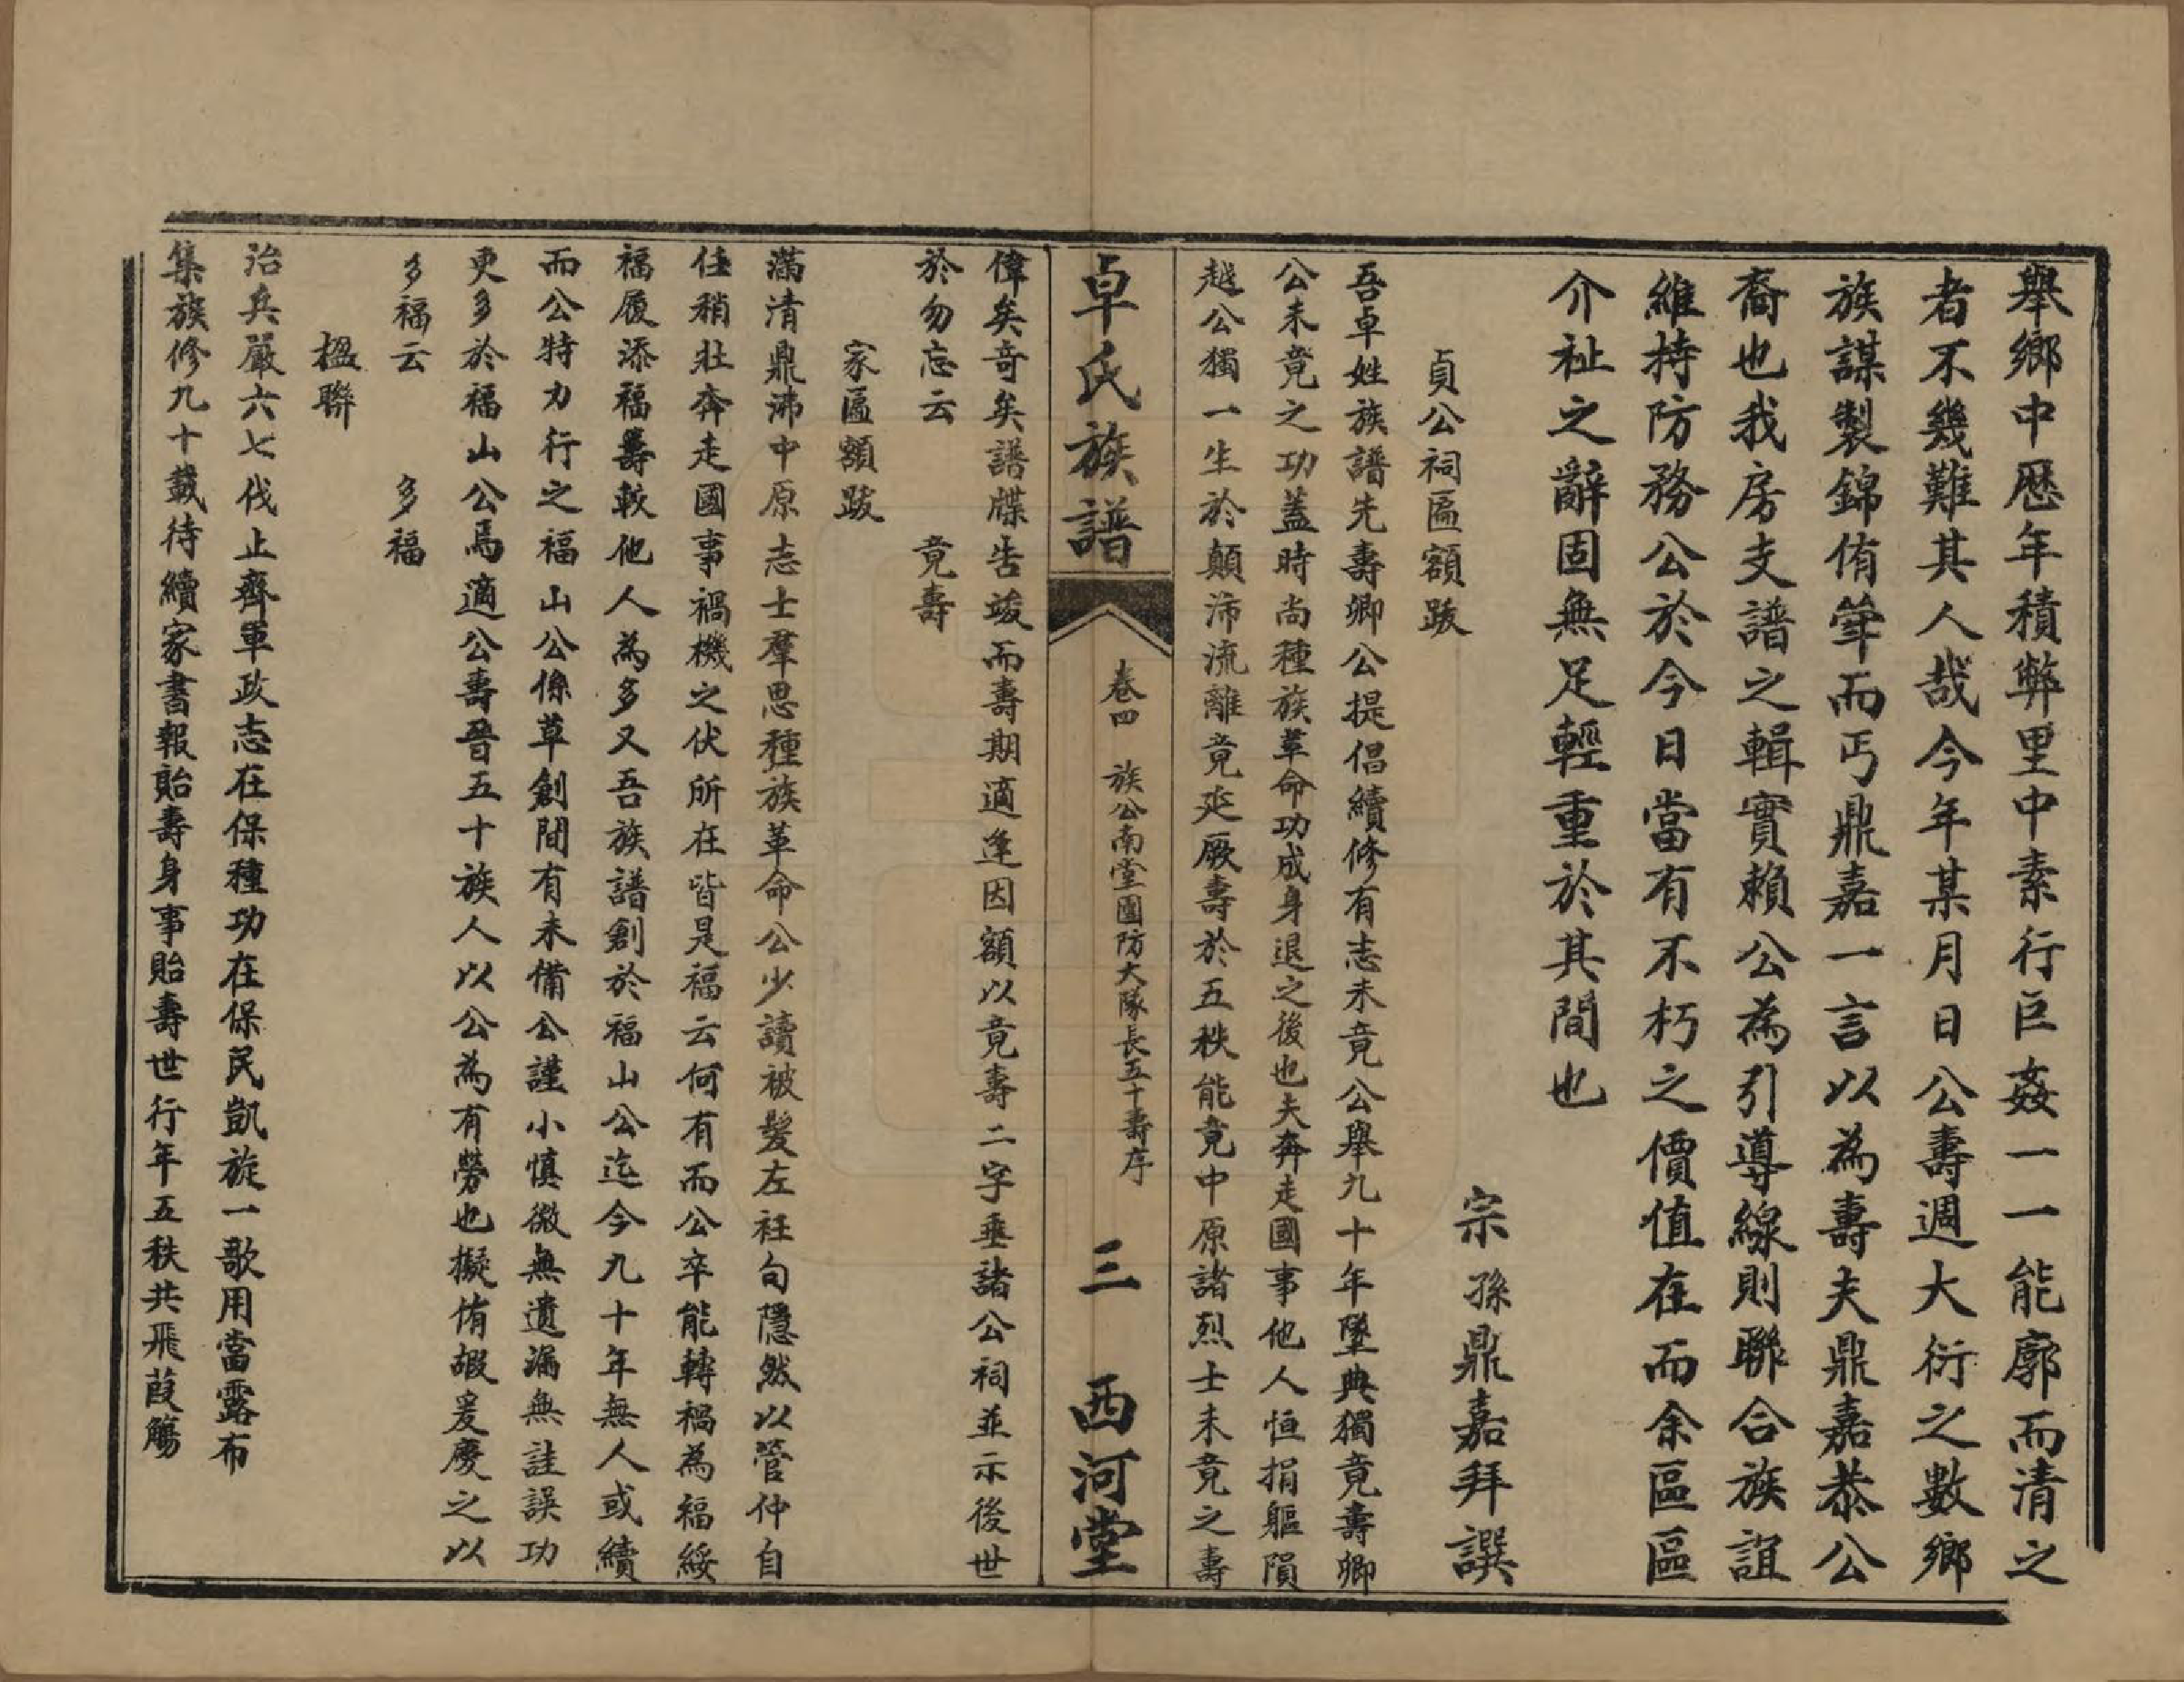 舉鄉中歷年積弊里中素行巨姦一一能廓而清之
者不幾難其人哉今年某月日公壽週大衍之數鄉
族謀製錦侑筆而丐鼎嘉一言以為壽夫鼎嘉恭公
裔也我房支譜之輯實賴公為引導線則聯合族誼
維持防務公於今日當有不朽之價值在而余區區
介祉之辭固無足輕重於其間也
宗孫鼎嘉拜譔
貞公祠匾額跋
吾卓姓族譜先壽卿公提倡續修有志未竟公舉九十年墜典獨竟壽卿
公未竟之功蓋時尚種族革命功成身退之後也夫奔走國事他人恒捐軀隕
越公獨一生於顛沛流離竟延厥壽於五秩能竟中原諸烈士未竟之壽
卓氏族譜 卷四 族公南堂團防大隊長五十壽序 三 西河堂
偉矣奇矣譜牒告竣而壽期適逢因額以竟壽二字垂諸公祠並示後世
於勿忘云 竟壽
家匾額跋
滿清鼎沸中原志士羣思種族革命公少讀被髮左衽句隱然以管仲自
任稍壯奔走國事禍機之伏所在皆是福云何有而公卒能轉禍為福綏
福履添福籌較他人為多又吾族譜創於福山公迄今九十年無人或續
而公特力行之福山公係草創間有未備公謹小慎微無遺漏無詿誤功
更多於福山公焉適公壽晉五十族人以公為有勞也擬侑嘏爰慶之以
多福云 多福
楹聯
治兵嚴六七伐止齊軍政志在保種功在保民凱旋一歌用當露布
集族修九十載待續家書報貽壽身事貽壽世行年五秩共飛葭觴